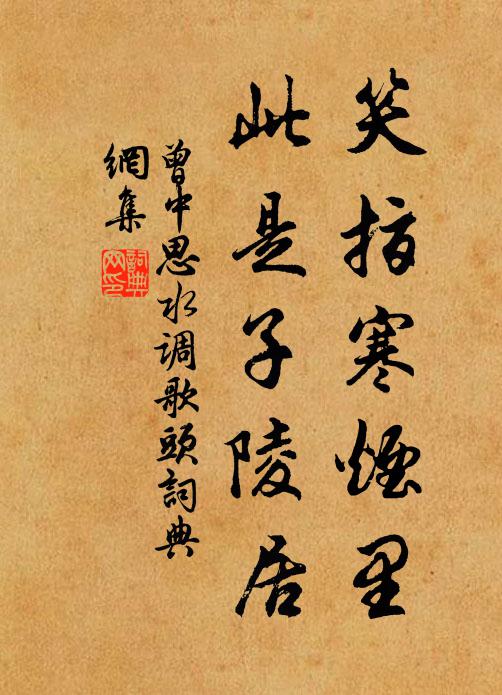 笑指寒煙里
此是子陵居
曾中思水调歌頭詞典
網集
詞典
网印